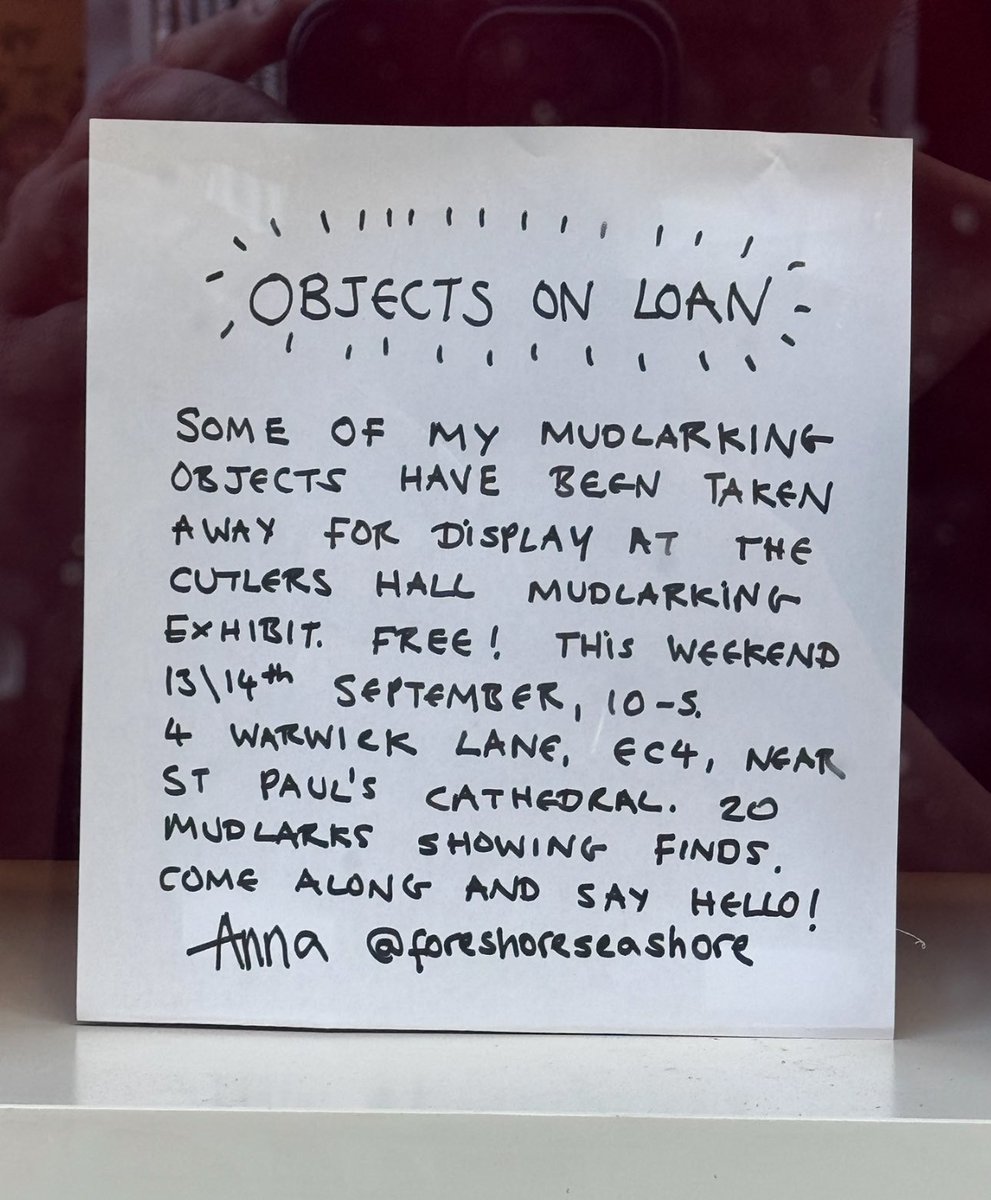 OBJECTS ON LOAN
SOME OF MY MUDLARKING
OBJECTS HAVE BEEN TAKEN
AWAY FOR DISPLAY AT THE
CUTLERS HALL MUDLARKING
EXHIBIT. FREE! THIS WEEKEND
13\14th SEPTEMBER, 10-5.
4 WARWICK LANE, EC4, NEAR
ST PAUL'S CATHEDRAL. 20
MUDLARKS SHOWING FINDS.
COME ALONG AND SAY HELLO!
Anna @foreshoreseashore